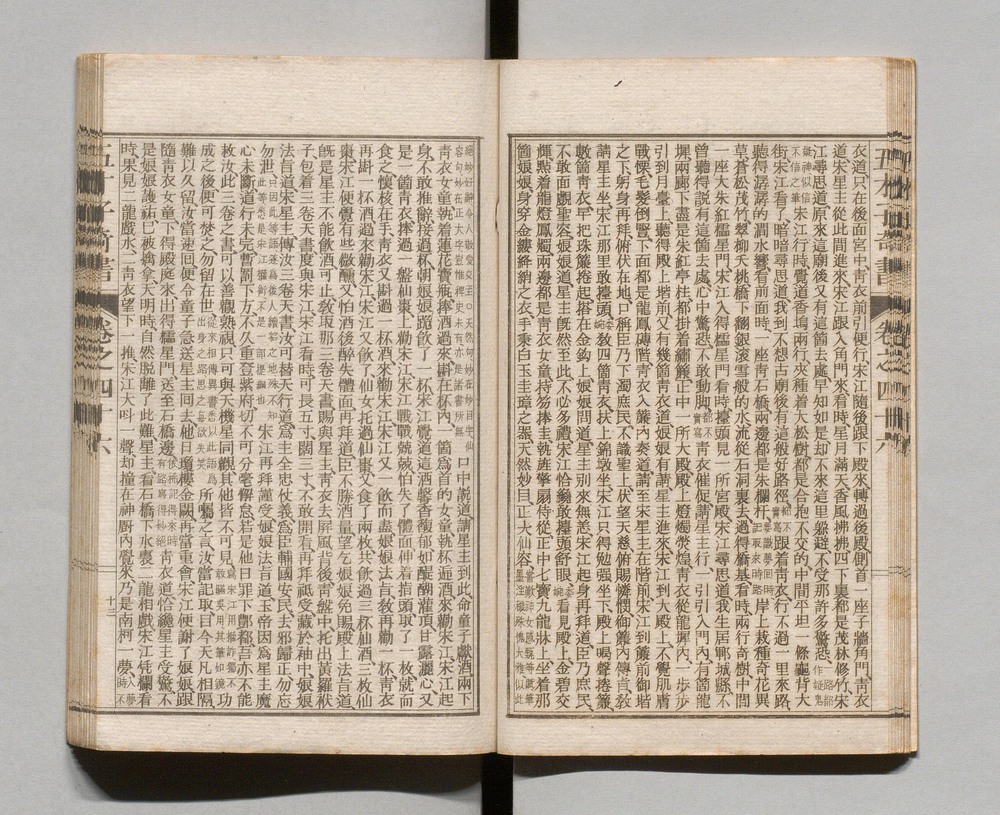 衣道只在後面宮中青衣前引便行宋江隨後跟下殿來轉過後殿側首一座子牆角門青衣
道宋星主從此間進來宋江跟入角門來看時星月滿天香風拂拂四下裏都是茂林修竹宋
江尋思道原來這廟後又有這箇去處早知如是却不來這里躲避不受那許多驚恐作疑鬼
疑神似信不信之筆宋江行時覺道香塢兩行夾種着大松樹都是合抱不交的中間平坦一條龜背大
街宋江看了暗暗尋思道我到不想古廟後有這般好路徑跟着青衣行不過一里來路
聽得潺潺的澗水響看前面時一座青石橋兩邊都是朱欄杆岸上栽種奇花異
草蒼松茂竹翠柳夭桃橋下翻銀滾雪般的水流從石洞裏去過得橋基看時兩行奇樹中間
一座大朱紅櫺星門宋江入得櫺星門看時擡頭見一所宮殿宋江尋思道我生居鄆城縣不
曾聽得說有這箇去處心中驚恐不敢動脚青衣催促請星主行一引引入門內有箇龍
墀兩廊下盡是朱紅亭柱都掛着繡簾正中一所大殿殿上燈燭熒煌青衣從龍墀內一步步
引到月臺上聽得殿上堦前又有幾箇青衣道娘娘有請星主進來宋江到大殿上不覺肌膚
戰慄毛髮倒豎下面都是龍鳳磚堦青衣入簾內奏道請至宋星主在階前宋江到簾前御堦
之下躬身再拜俯伏在地口稱臣乃下濁庶民不識聖上伏望天慈俯賜憐憫御簾內傳旨教
請星主坐宋江那里敢擡頭教四箇青衣扶上錦墩坐宋江只得勉强坐下殿上喝聲捲簾
數箇青衣早把珠簾捲起搭在金鉤上娘娘問道星主別來無恙宋江起身再拜道臣乃庶民
不敢面覷聖容娘娘道星主旣然至此不必多禮宋江恰纔敢擡頭舒眼看見殿上金碧交
輝點着龍燈鳳燭兩邊都是青衣女童持笏捧圭執旌擎扇侍從正中七寶九龍牀上坐着那
箇娘娘身穿金縷絳綃之衣手秉白玉圭璋之器天然妙目正大仙容
口中說道請星主到此命童子獻酒兩下
青衣女童執着蓮花寶瓶捧酒過來斟在杯內一箇爲首的女童執杯遞酒來勸宋江宋江起
身不敢推辭接過杯朝娘娘跪飮了一杯宋江覺道這酒馨香馥郁如醍醐灌頂甘露灑心又
是一箇青衣捧過一盤仙棗上勸宋江宋江戰戰兢兢怕失了體面伸着指頭取了一枚就而
食之懷核在手青衣又斟過一杯酒來勸宋江宋江又一飮而盡娘娘法旨教再勸一杯青衣
再斟一杯酒過來勸宋江宋江又飮了仙女托過仙棗又食了兩枚共飮過三杯仙酒三枚仙
棗宋江便覺有些微醺又怕酒後醉失體面再拜道臣不勝酒量望乞娘娘免賜殿上法旨道
旣是星主不能飮酒可止教取那三卷天書賜與星主青衣去屏風背後青盤中托出黃羅袱
子包着三卷天書度與宋江宋江看時可長五寸闊三寸不敢開看再拜祗受藏於袖中娘娘
法旨道宋星主傳汝三卷天書汝可替天行道爲主全忠仗義爲臣輔國安民去邪歸正勿忘
勿泄宋江再拜謹受娘娘法旨道玉帝因爲星主魔
心未斷道行未完暫罰下方不久重登紫府切不可分毫懈怠若是他日罪下酆都吾亦不能
救汝此三卷之書可以善觀熟視只可與天機星同觀其他皆不可見功
成之後便可焚之勿留在世所囑之言汝當記取目今天凡相隔
難以久留汝當速回便令童子急送星主回去他日瓊樓金闕再當重會宋江便謝了娘娘跟
隨青衣女童下得殿庭來出得櫺星門送至石橋邊青衣道恰纔星主受驚不
是娘娘護祐已被擒拿天明時自然脫離了此難星主看石橋下水裏二龍相戲宋江凭欄看
時果見二龍戲水二青衣望下一推宋江大叫一聲却撞在神厨內覺來乃是南柯一夢
卷之四十六
十三